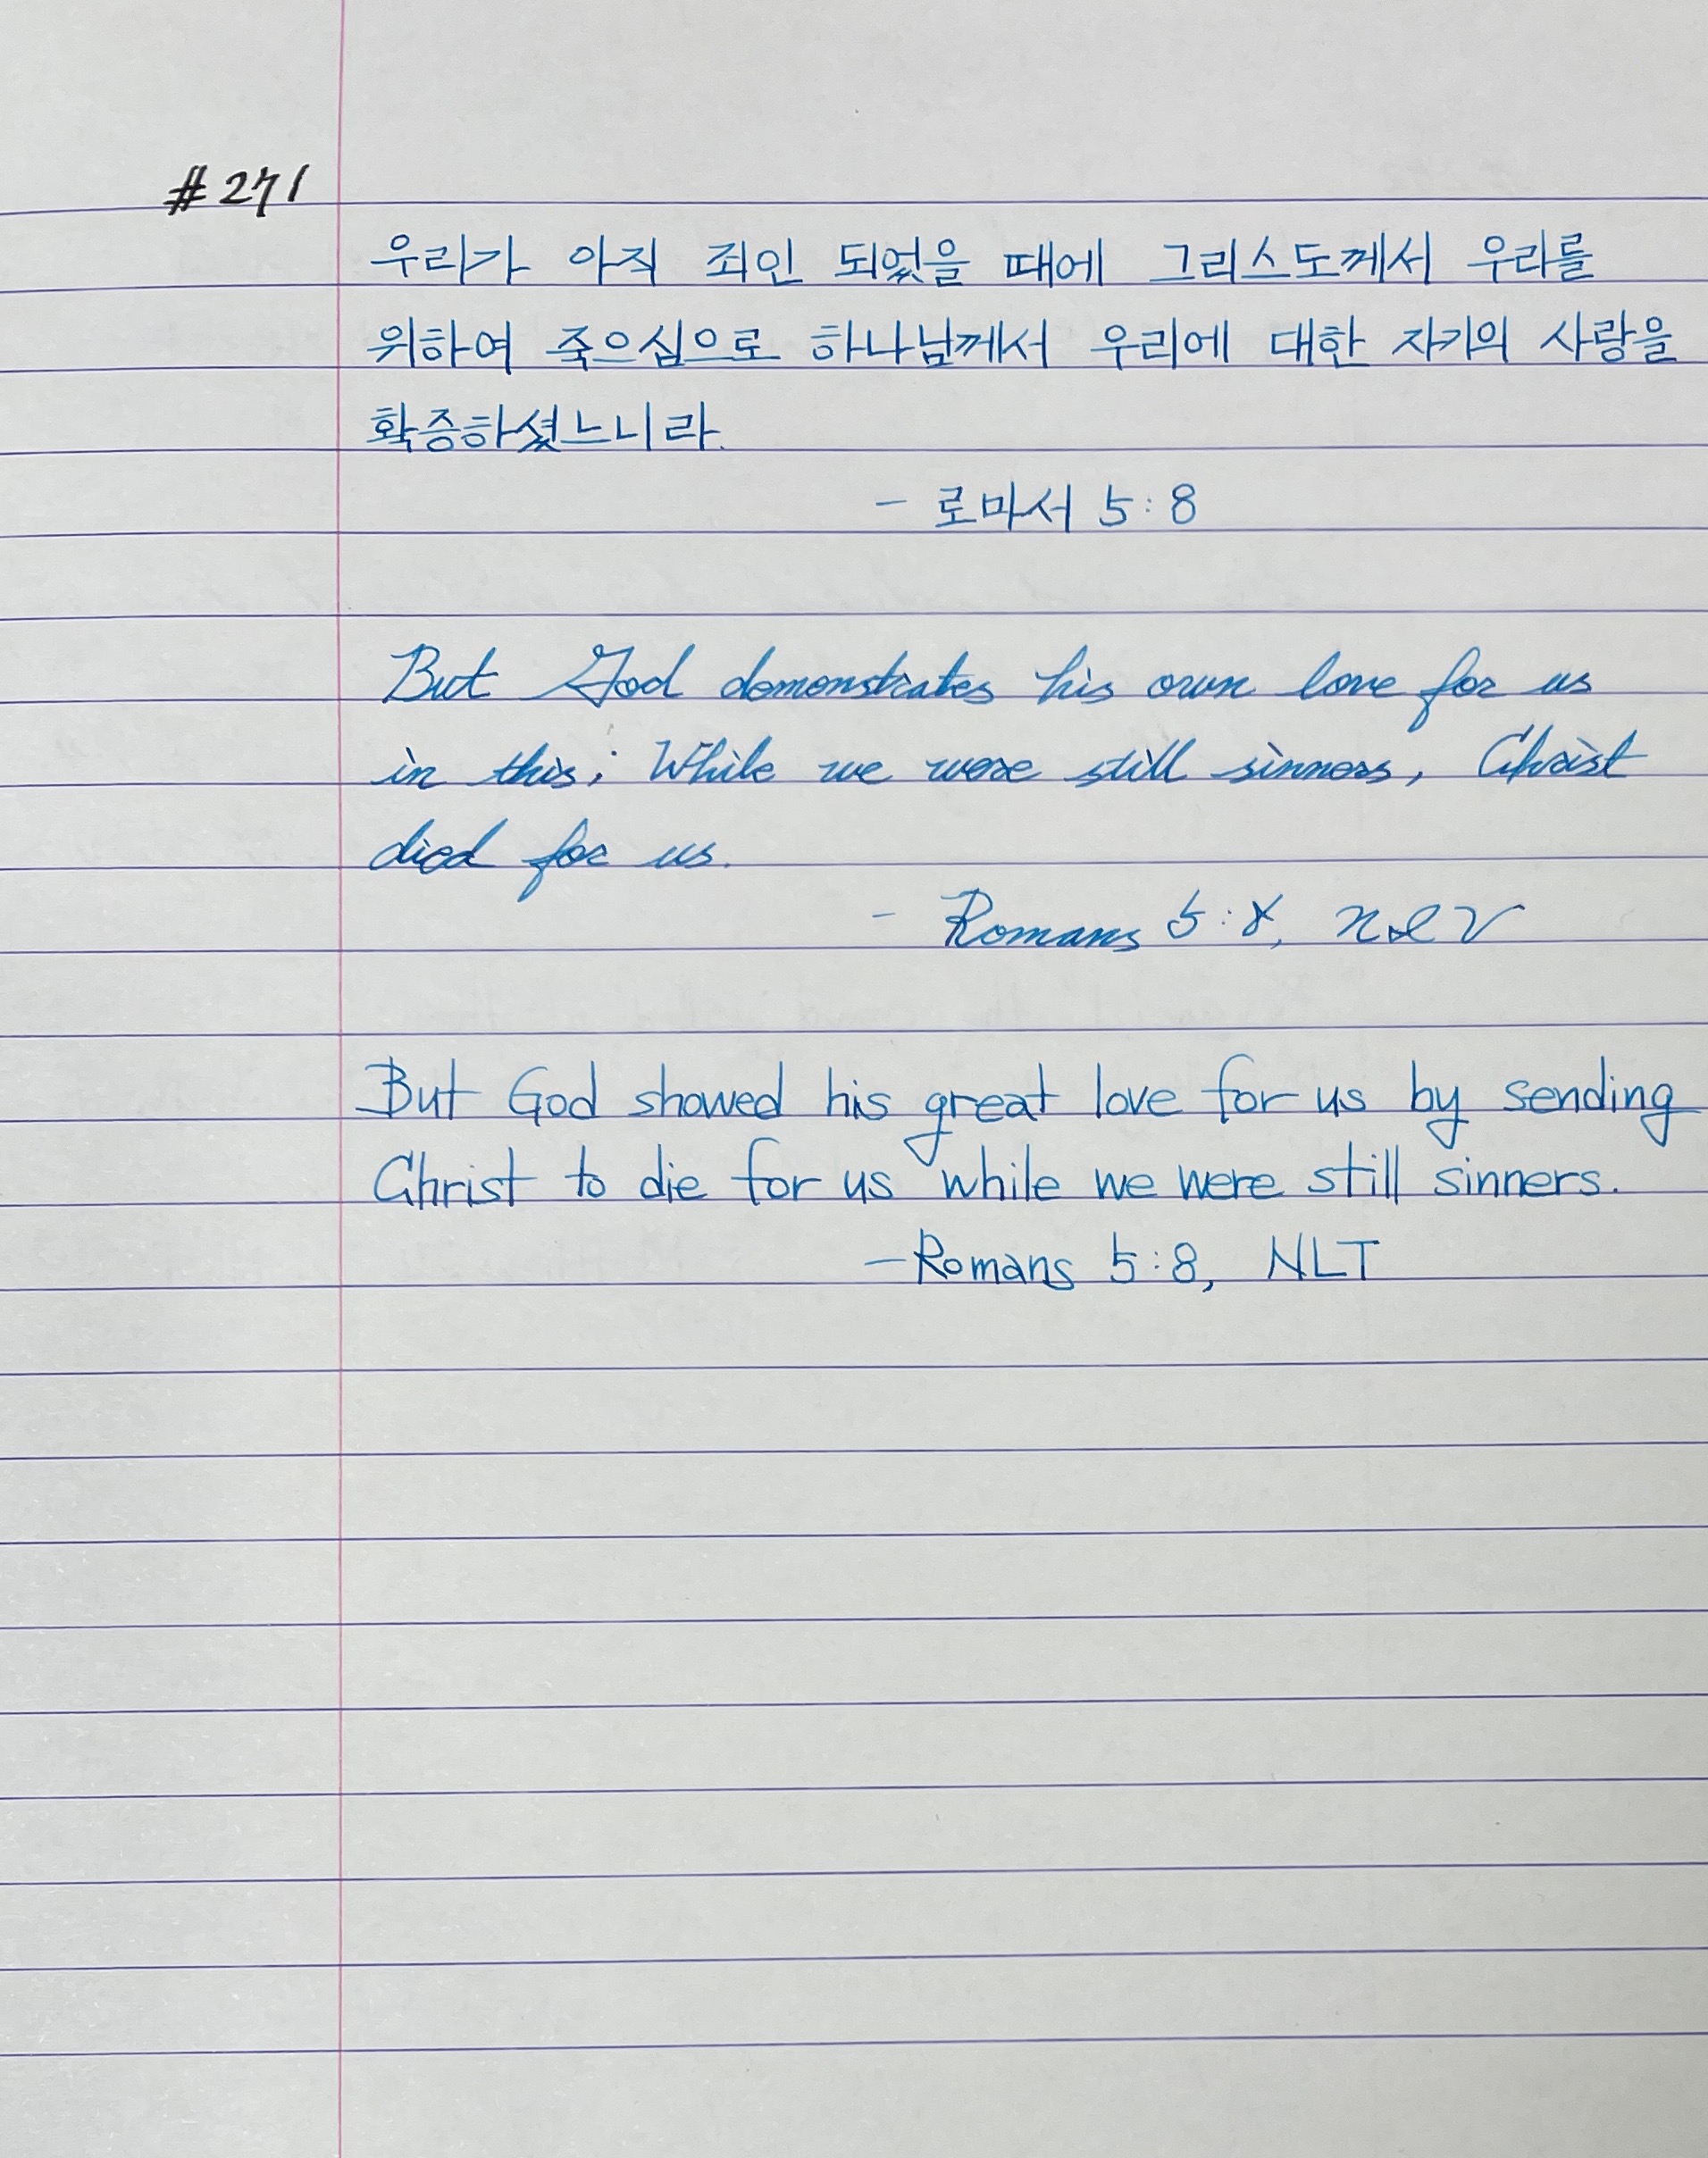 #271
우리가 아직 죄인 되었을 때에 그리스도께서 우리를
위하여 죽으심으로 하나님께서 우리에 대한 자기의 사랑을
확증하셨느니라.
- 로마서 5:8
But God demonstrates his own love for us
in this: While we were still sinners, Christ
died for us.
- Romans 5:8, NIV
But God showed his great love for us by sending
Christ to die for us while we were still sinners.
- Romans 5:8, NLT